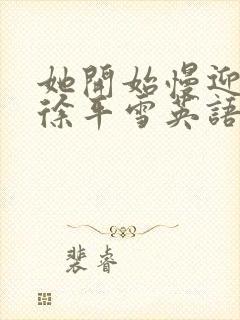 她開始慢迎
徐平雪英語
裴睿